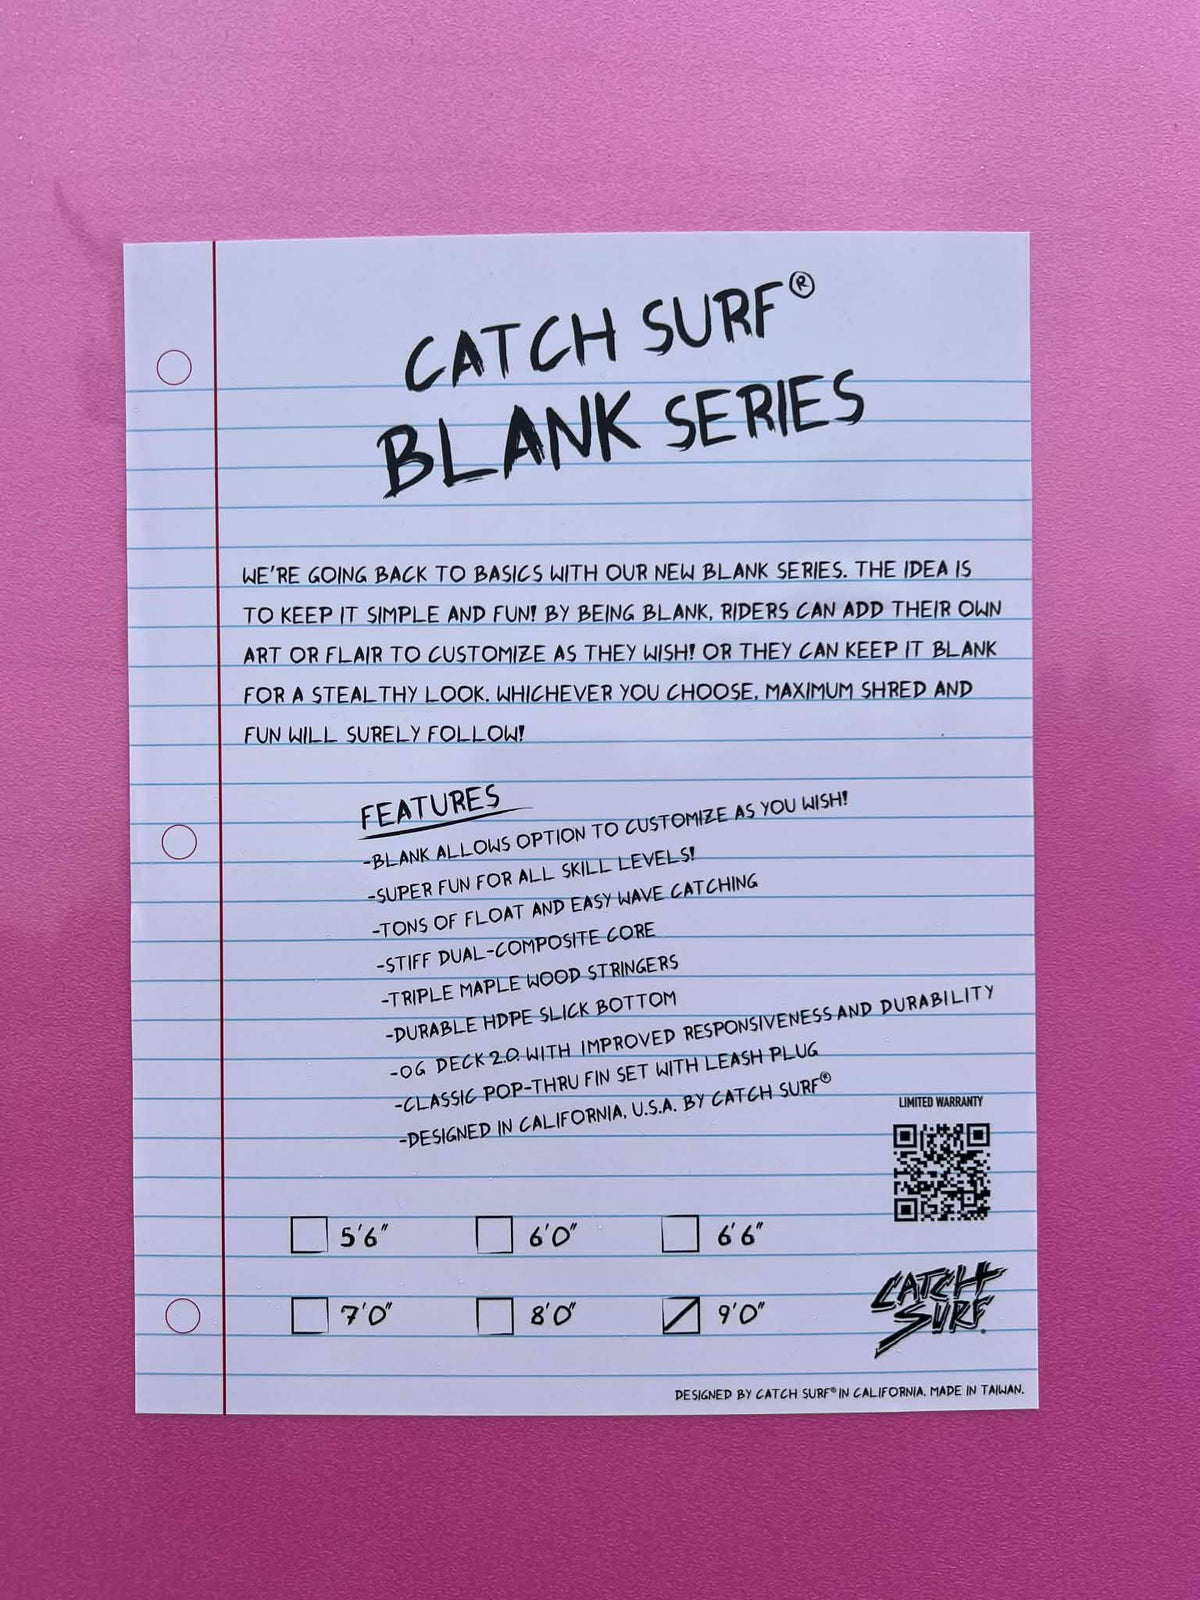 CATCH SURF®
BLANK SERIES
WE'RE GOING BACK TO BASICS WITH OUR NEW BLANK SERIES. THE IDEA IS
TO KEEP IT SIMPLE AND FUN! BY BEING BLANK, RIDERS CAN ADD THEIR OWN
ART OR FLAIR TO CUSTOMIZE AS THEY WISH! OR THEY CAN KEEP IT BLANK
FOR A STEALTHY LOOK. WHICHEVER YOU CHOOSE, MAXIMUM SHRED AND
FUN WILL SURELY FOLLOW!
FEATURES
-BLANK ALLOWS OPTION TO CUSTOMIZE AS YOU WISH!
-SUPER FUN FOR ALL SKILL LEVELS!
-TONS OF FLOAT AND EASY WAVE CATCHING
-STIFF DUAL-COMPOSITE CORE
-TRIPLE MAPLE WOOD STRINGERS
-DURABLE HDPE SLICK BOTTOM
-OG DECK 2.0. WITH IMPROVED RESPONSIVENESS AND DURABILITY
-CLASSIC POP-THRU FIN SET WITH LEASH PLUG
-DESIGNED IN CALIFORNIA, U.S.A. BY CATCH SURF®
LIMITED WARRANTY
5'6" 6'0" 6'6"
7'0" 8'0" 9'0"
CATCH
SURF.
DESIGNED BY CATCH SURF® IN CALIFORNIA. MADE IN TAIWAN.